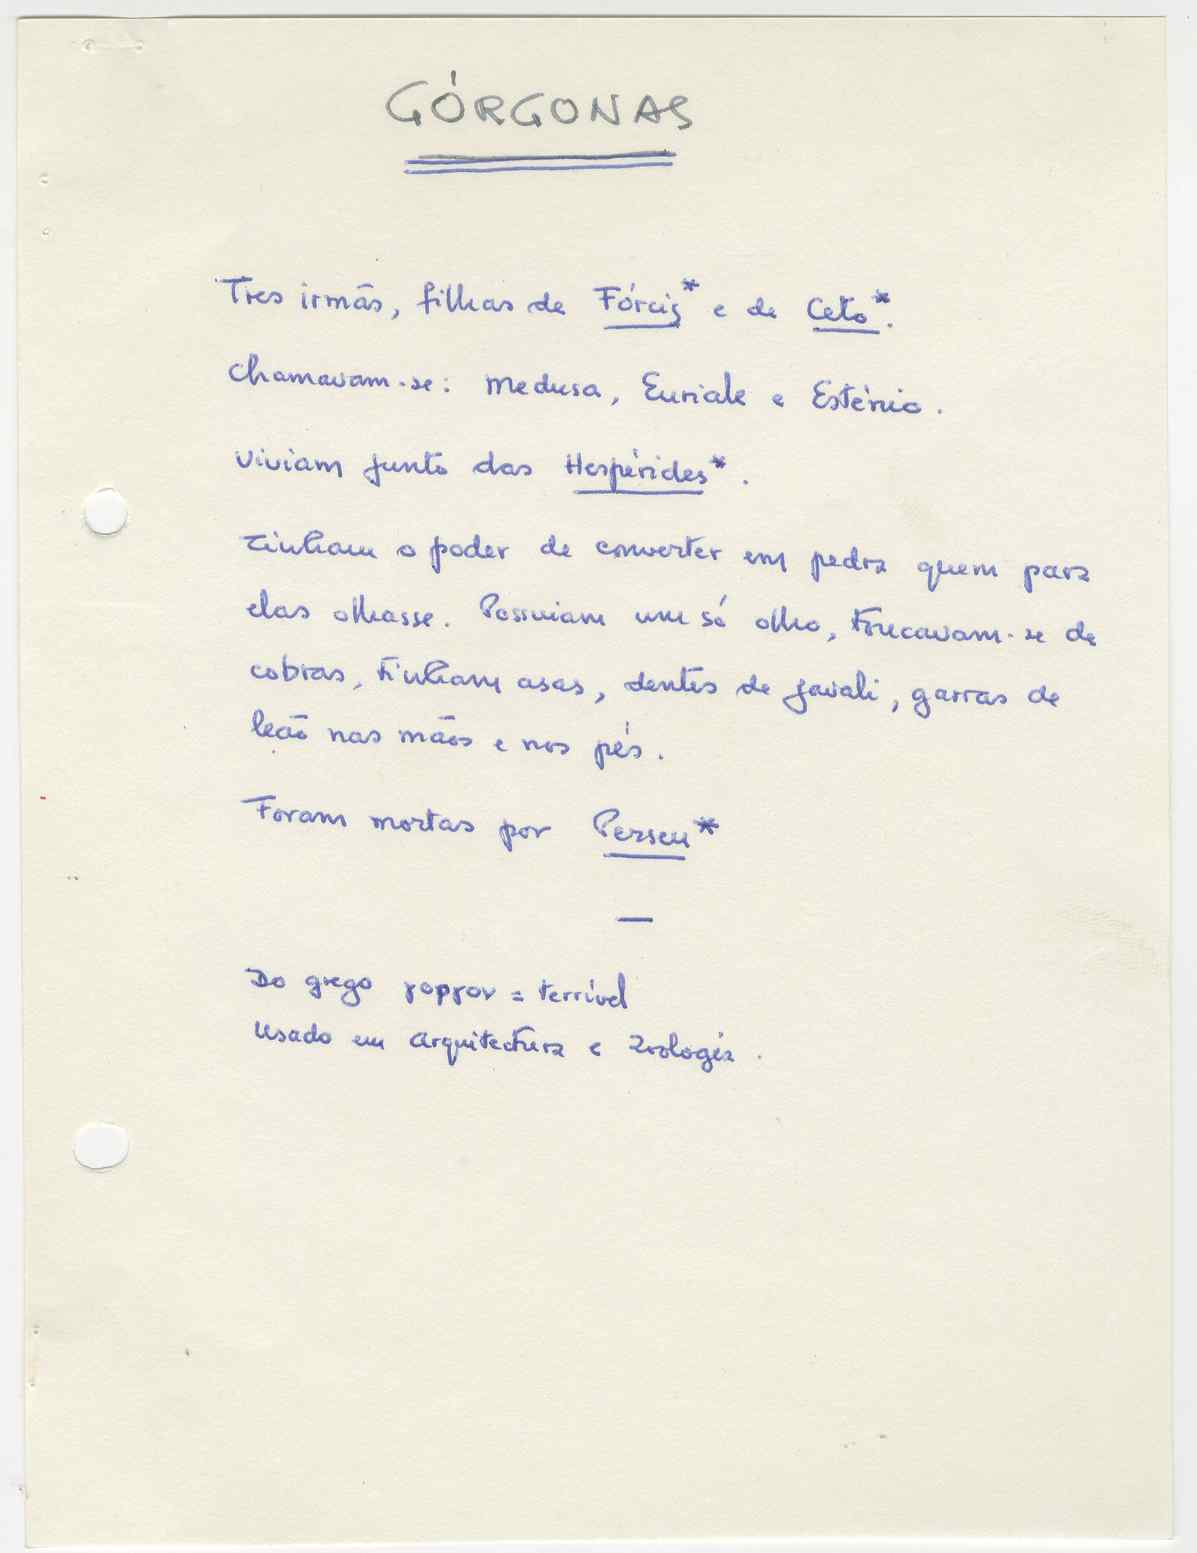 GÓRGONAS
Tres irmãs, filhas de Fórcis* e de Ceto*.
Chamavam-se: Medusa, Euriale e Esténio.
Viviam junto das Hespérides*.
Tinham o poder de converter em pedra quem para
elas olhasse. Possuiam um só olho, toucavam-se de
cobras, tinham asas, dentes de javali, garras de
leão nas mãos e nos pés.
Foram mortas por Perseu*
—
Do grego γοργον = terrível
Usado em arquitectura e zoologia.